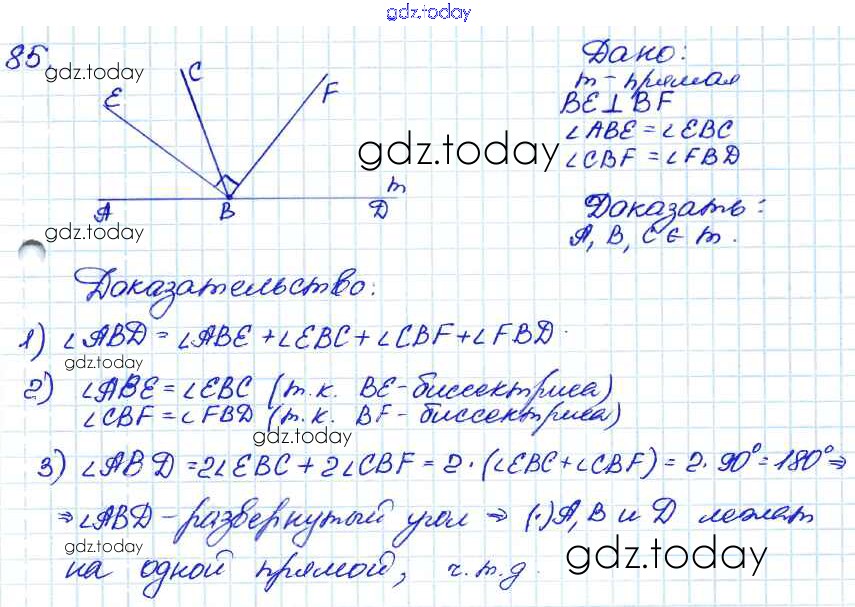 gdz.today
85.
gdz.today
E
C
F
A
B
D
m
Дано:
m - прямая
BE ⊥ BF
∠ABE = ∠EBC
∠CBF = ∠FBD
gdz.today
Доказать:
A, B, C ∈ m.
gdz.today
Доказательство:
1) ∠ABD = ∠ABE + ∠EBC + ∠CBF + ∠FBD.
gdz.today
2) ∠ABE = ∠EBC (т.к. BE - биссектриса)
∠CBF = ∠FBD (т.к. BF - биссектриса)
gdz.today
3) ∠ABD = 2∠EBC + 2∠CBF = 2·(∠EBC+∠CBF) = 2·90° = 180° ⇒
⇒ ∠ABD - развернутый угол ⇒ (·) A, B и D лежат
gdz.today
на одной прямой, ч.т.д.
gdz.today